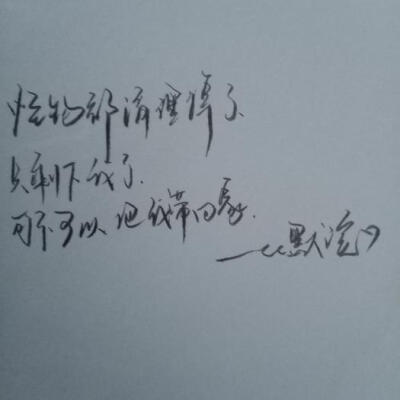 怪物都清理掉了.
只剩下我了.
可不可以把我带回家.